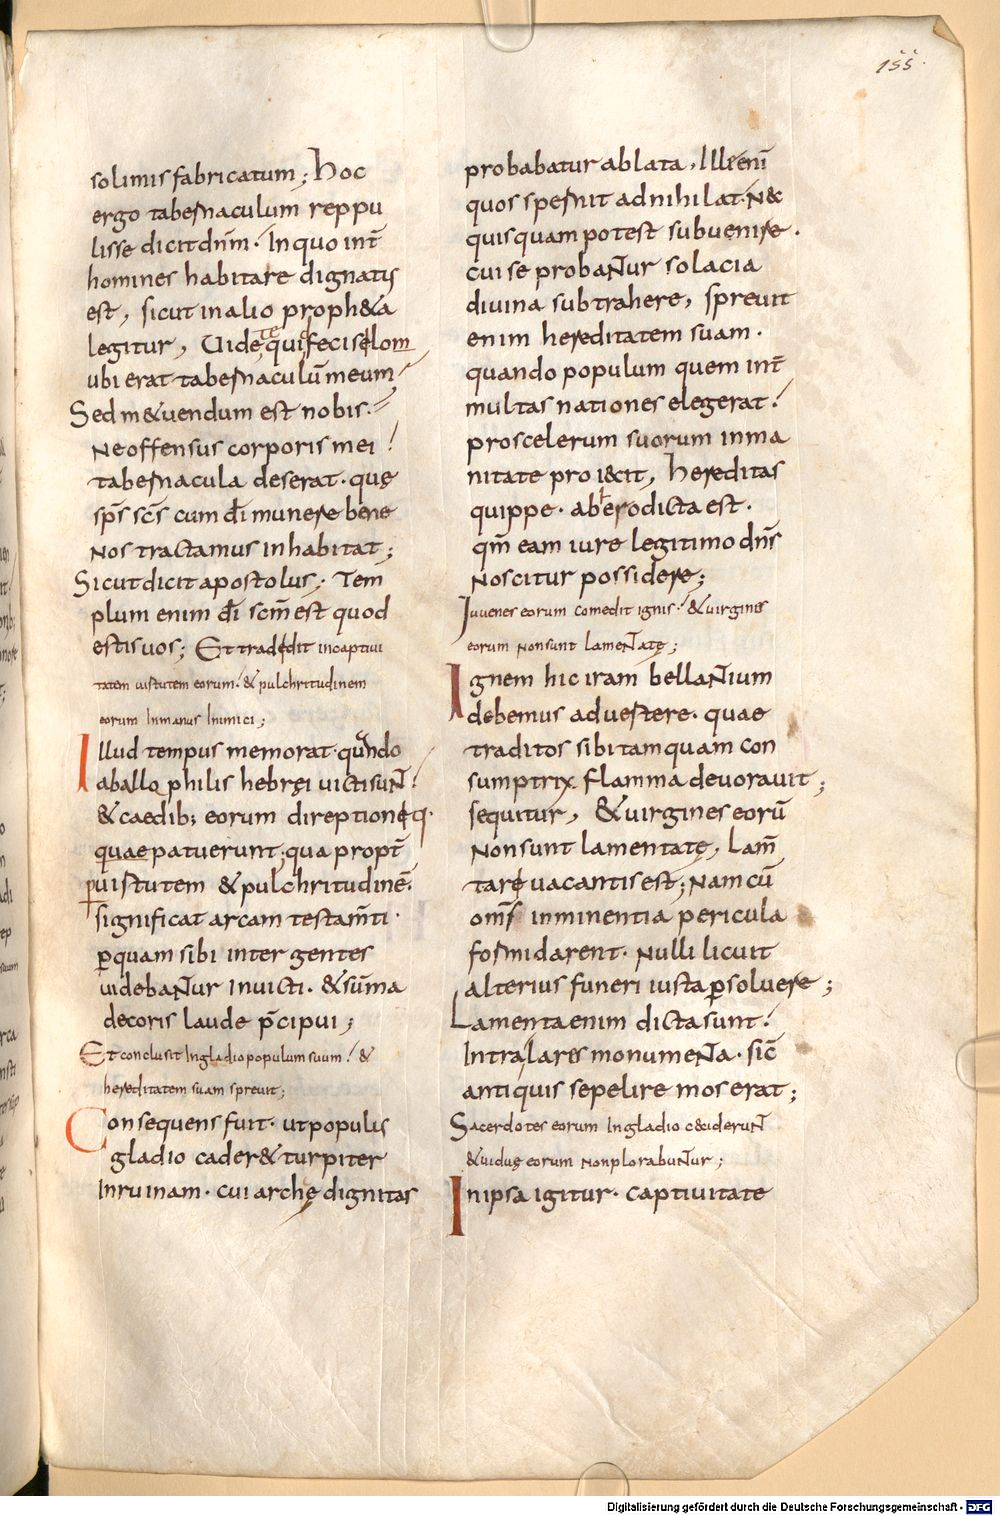 155
solimis fabricatum; Hoc
ergo tabernaculum reppu
lisse dicit dnm̄. In quo int̄
homines habitare dignatus
est, sicut in alio proph&a
legitur, Uidete quid feci selom
ubi erat tabernaculū meum
Sed m&uendum est nobis.
Ne offensus corporis mei
tabernacula deserat. quę
sps̄ scs̄ cum dī munere bene
Nos tractamus inhabitat;
Sicut dicit apostolus; Tem
plum enim dī scm̄ est quod
estis uos; Et tradidit in captiui
tatem uirtutem eorum. & pulchritudinem
eorum In manus Inimici;
Illud tempus memorat. quando
ab allophilis hebręi uicti sunt
& caedib; eorum
quae patuerunt; qua propt̄
uirtutem & pulchritudinē.
significat arcam testam̄ti.
ꝑquam sibi inter gentes
uidebantur Inuicti. & sūma
decoris laude p̄cipui;
Et conclusit In gladio populum suum. &
hereditatem suam spreuit;
Consequens fuit. ut populus
gladio cader& turpiter
In ruinam. cui archę dignitas
probabatur ablata, Ille enī
quos spernit ad nihilat. N&
quisquam potest subuenire.
cui se probantur solacia
diuina subtrahere, spreuit
enim hereditatem suam.
quando populum quem int̄
multas nationes elegerat.
pro scelerum suorum inma
nitate proi&cit, Hereditas
quippe. ab dicta est.
qm̄ eam iure legitimo dns̄
Noscitur possidere;
Iuuenes eorum comedit ignis. & uirgines
eorum Non sunt lamentatę;
Ignem hic iram bellantium
debemus aduertere. quae
traditos sibi tamquam con
sumptrix flamma deuorauit;
sequitur, & uirgines eorū
Non sunt lamentatę, Lam̄
tare uacantis est; Nam cū
oms̄ inminentia pericula
formidarent. Nulli licuit
alterius funeri iusta ꝑsoluere;
Lamenta enim dicta sunt.
Intra lares monumenta. sic̄
antiquis sepelire mos erat;
Sacerdotes eorum In gladio c&ciderunt
& uiduę eorum Non plorabuntur;
In ipsa igitur. captiuitate
Digitalisierung gefördert durch die Deutsche Forschungsgemeinschaft - DFG